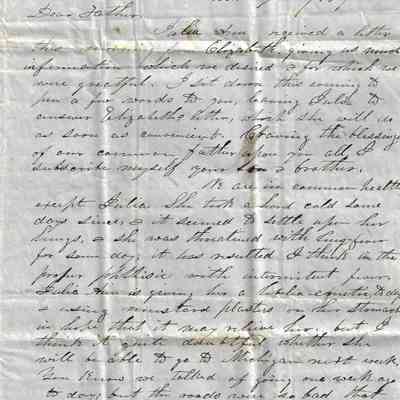 Dear Father
Julia Ann received a letter
this evening from Elizabeth giving us much
information which we desired & for which we
were greatful. I set down this evening to
pen a few words to you, leaving Julia to
answer Elizabeths letter, which she will do
as soon as convenient. Craving the blessings
of our common father upon you all, I
subscribe myself your son & brother.
We are in common health
except Julia. She took a hard cold some
days since, & it seemed to settle upon her
lungs, & she was threatened with lung fever
for some day, it was resulted I think in the
proper phthisic with intermittent fever.
Julia Ann is giving her a emetic to day
& using mustard plasters on her stomach
in hope that it may relieve her, but I
think it quite doubtful whether she
will be able to go to Michigan next week.
You know we talked of going one week ago
to day but the roads were so bad that